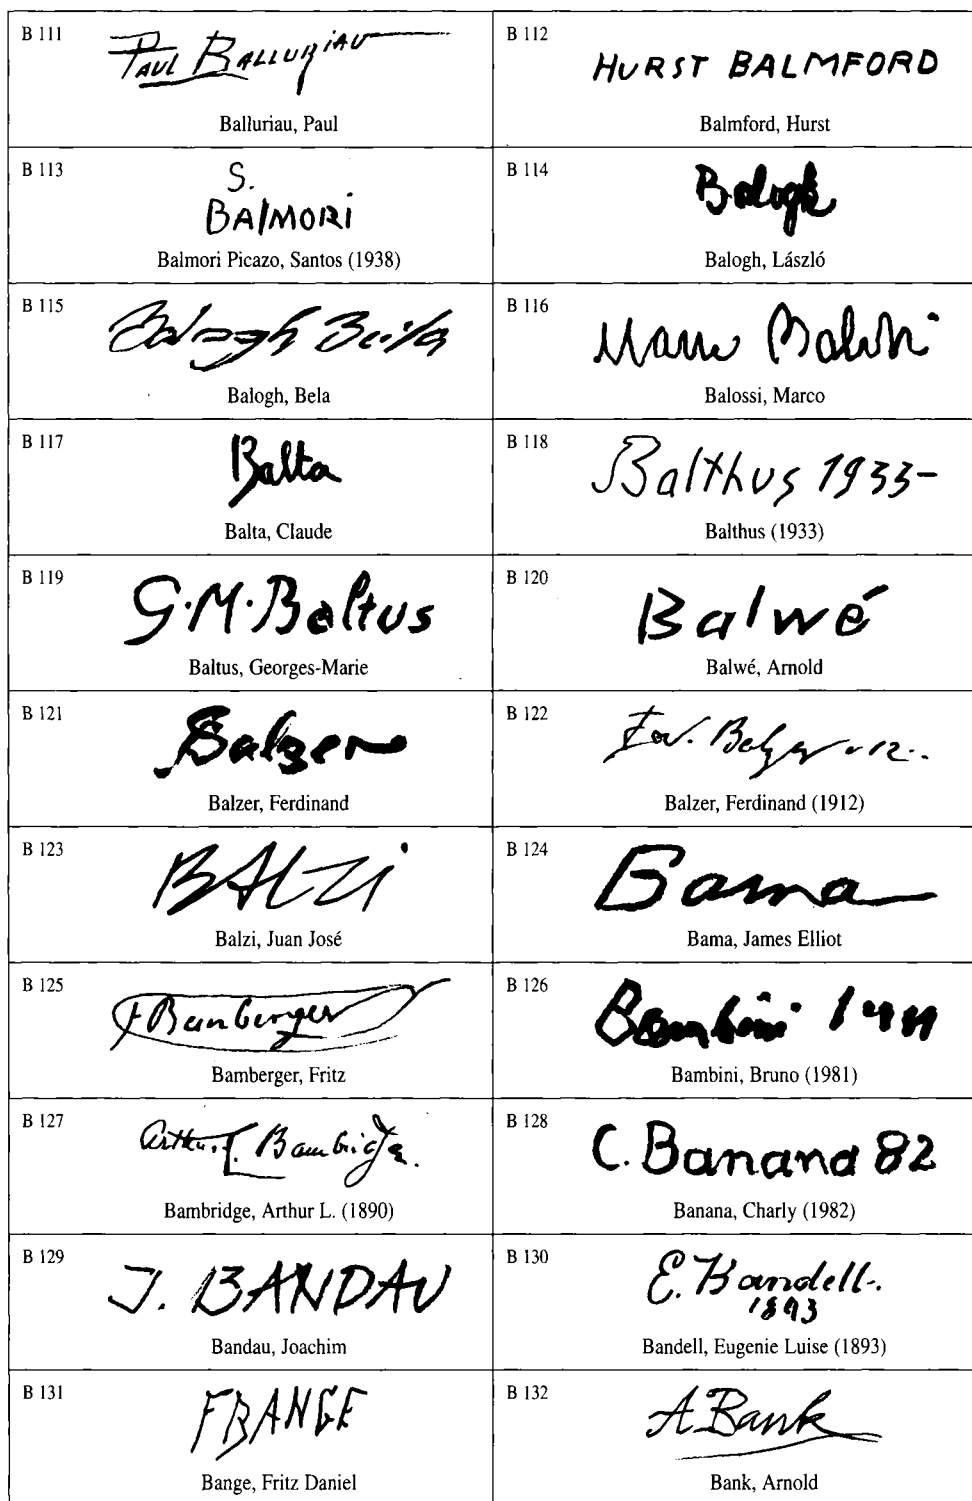 B 111
PAUL BALLURIAU
Balluriau, Paul
B 112
HURST BALMFORD
Balmford, Hurst
B 113
S.
BAlMORi
Balmori Picazo, Santos (1938)
B 114
Balogh
Balogh, László
B 115
Balogh Béla
Balogh, Bela
B 116
Marco Balossi
Balossi, Marco
B 117
Balta
Balta, Claude
B 118
Balthus 1933-
Balthus (1933)
B 119
G.M.Baltus
Baltus, Georges-Marie
B 120
Balwé
Balwé, Arnold
B 121
Balzer
Balzer, Ferdinand
B 122
Balzer
Balzer, Ferdinand (1912)
B 123
BAlZi
Balzi, Juan José
B 124
Bama
Bama, James Elliot
B 125
F Bamberger
Bamberger, Fritz
B 126
Bambini
Bambini, Bruno (1981)
B 127
Arthur L. Bambridge.
Bambridge, Arthur L. (1890)
B 128
C. Banana 82
Banana, Charly (1982)
B 129
J. BANDAU
Bandau, Joachim
B 130
E. Bandell.
1893
Bandell, Eugenie Luise (1893)
B 131
FBANGE
Bange, Fritz Daniel
B 132
A. Bank
Bank, Arnold